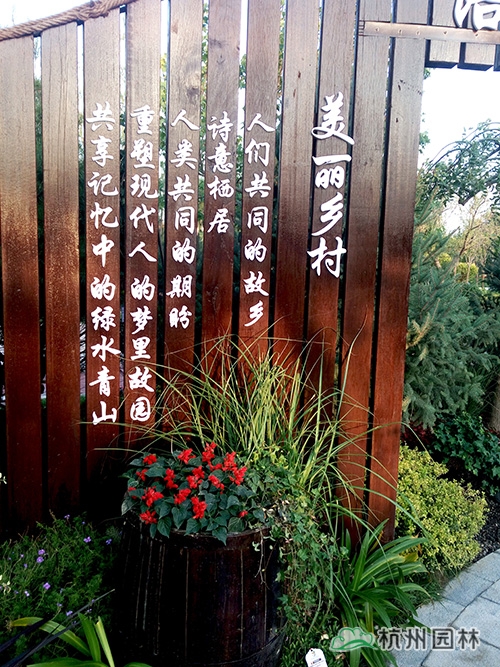 美丽乡村
人们共同的故乡
诗意栖居
人类共同的期盼
重塑现代人的梦里故园
共享记忆中的绿水青山
杭州园林